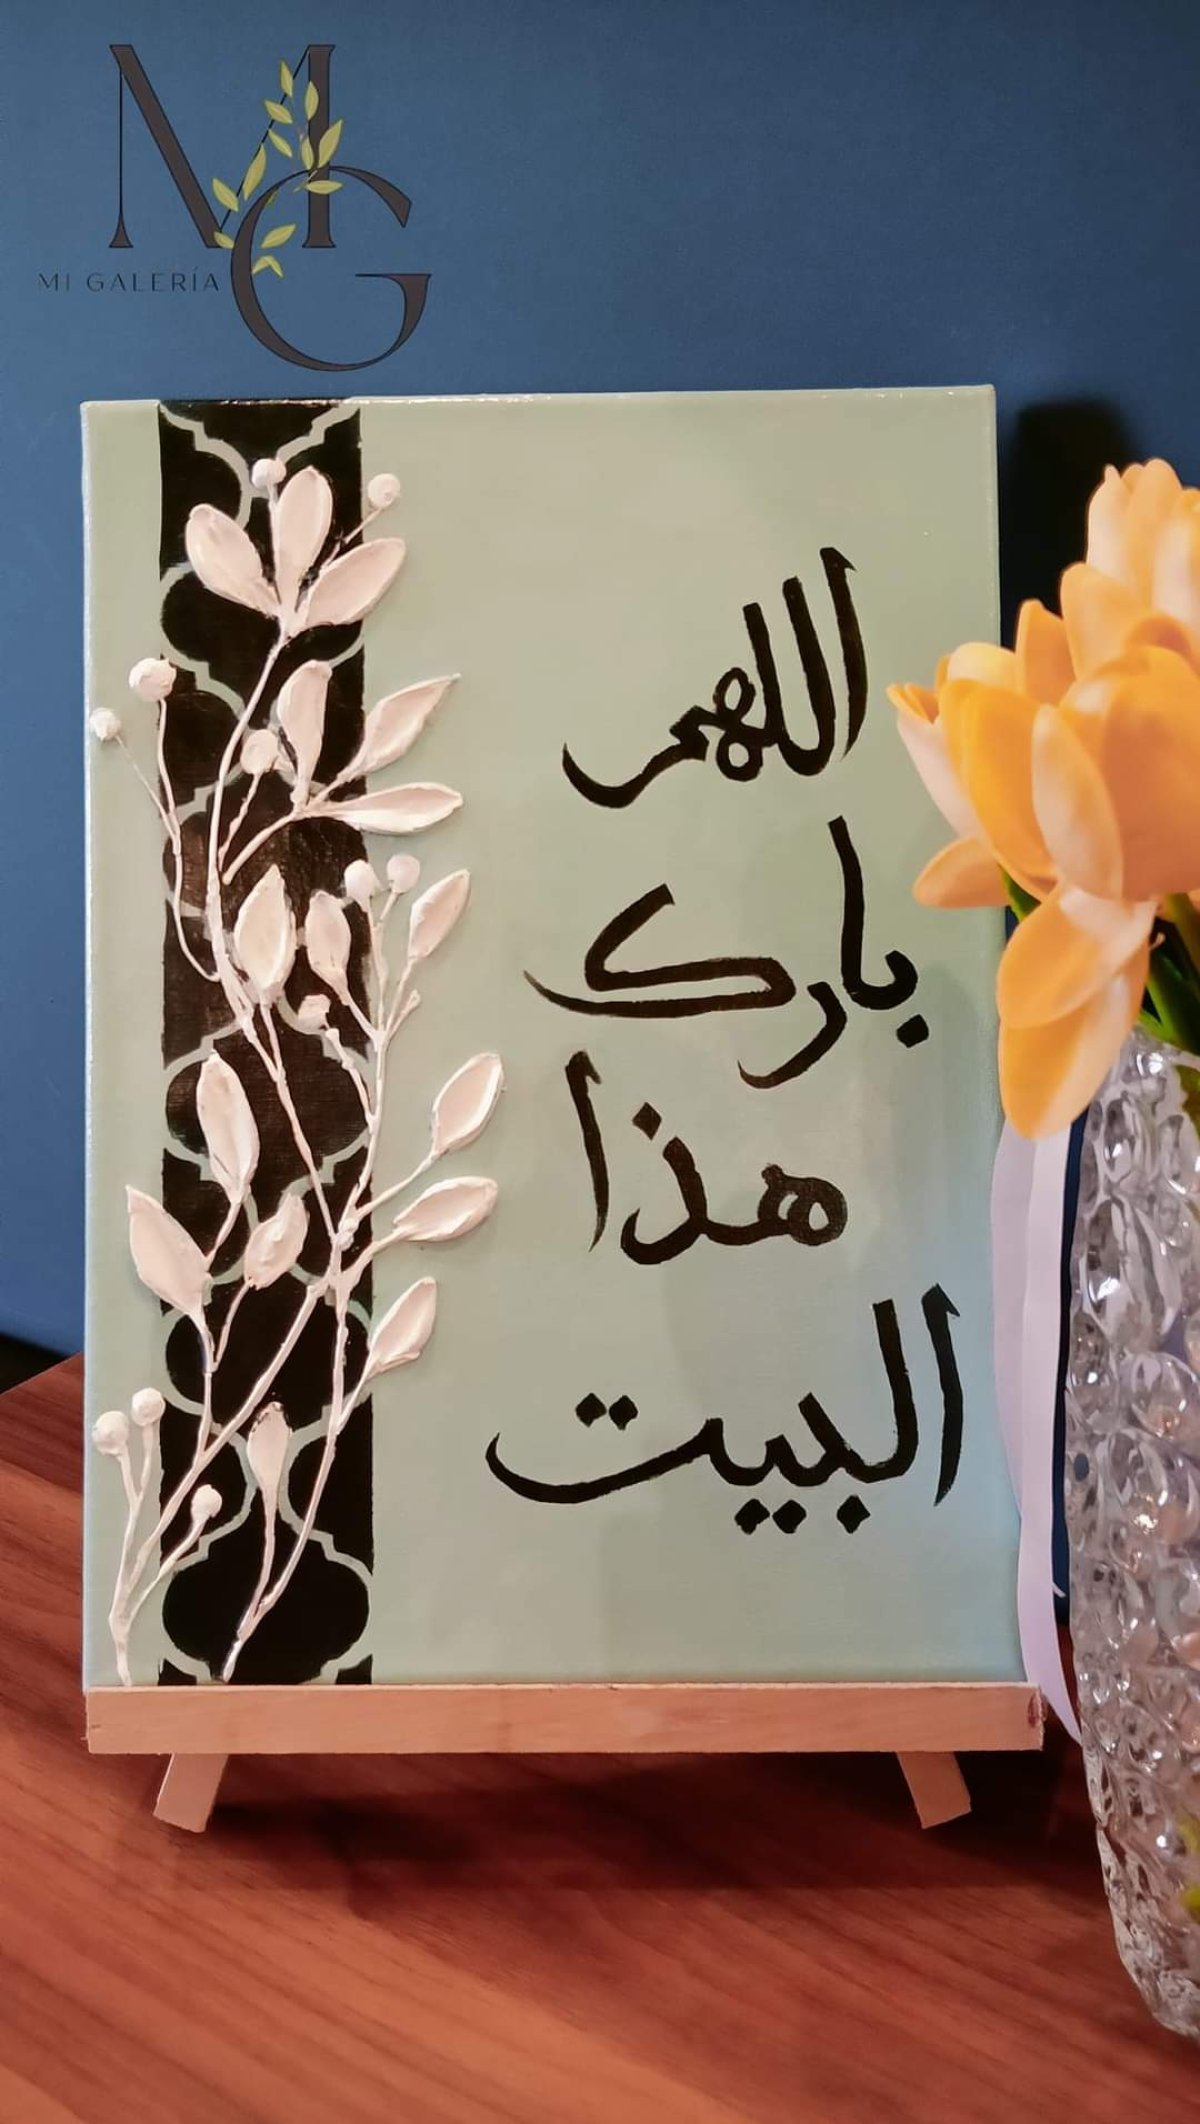 MG
MI GALERÍA
اللهم
بارك
هذا
البيت